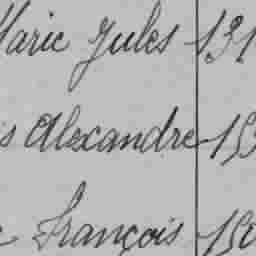 Marie Jules 131
s Alexandre 15
François 150